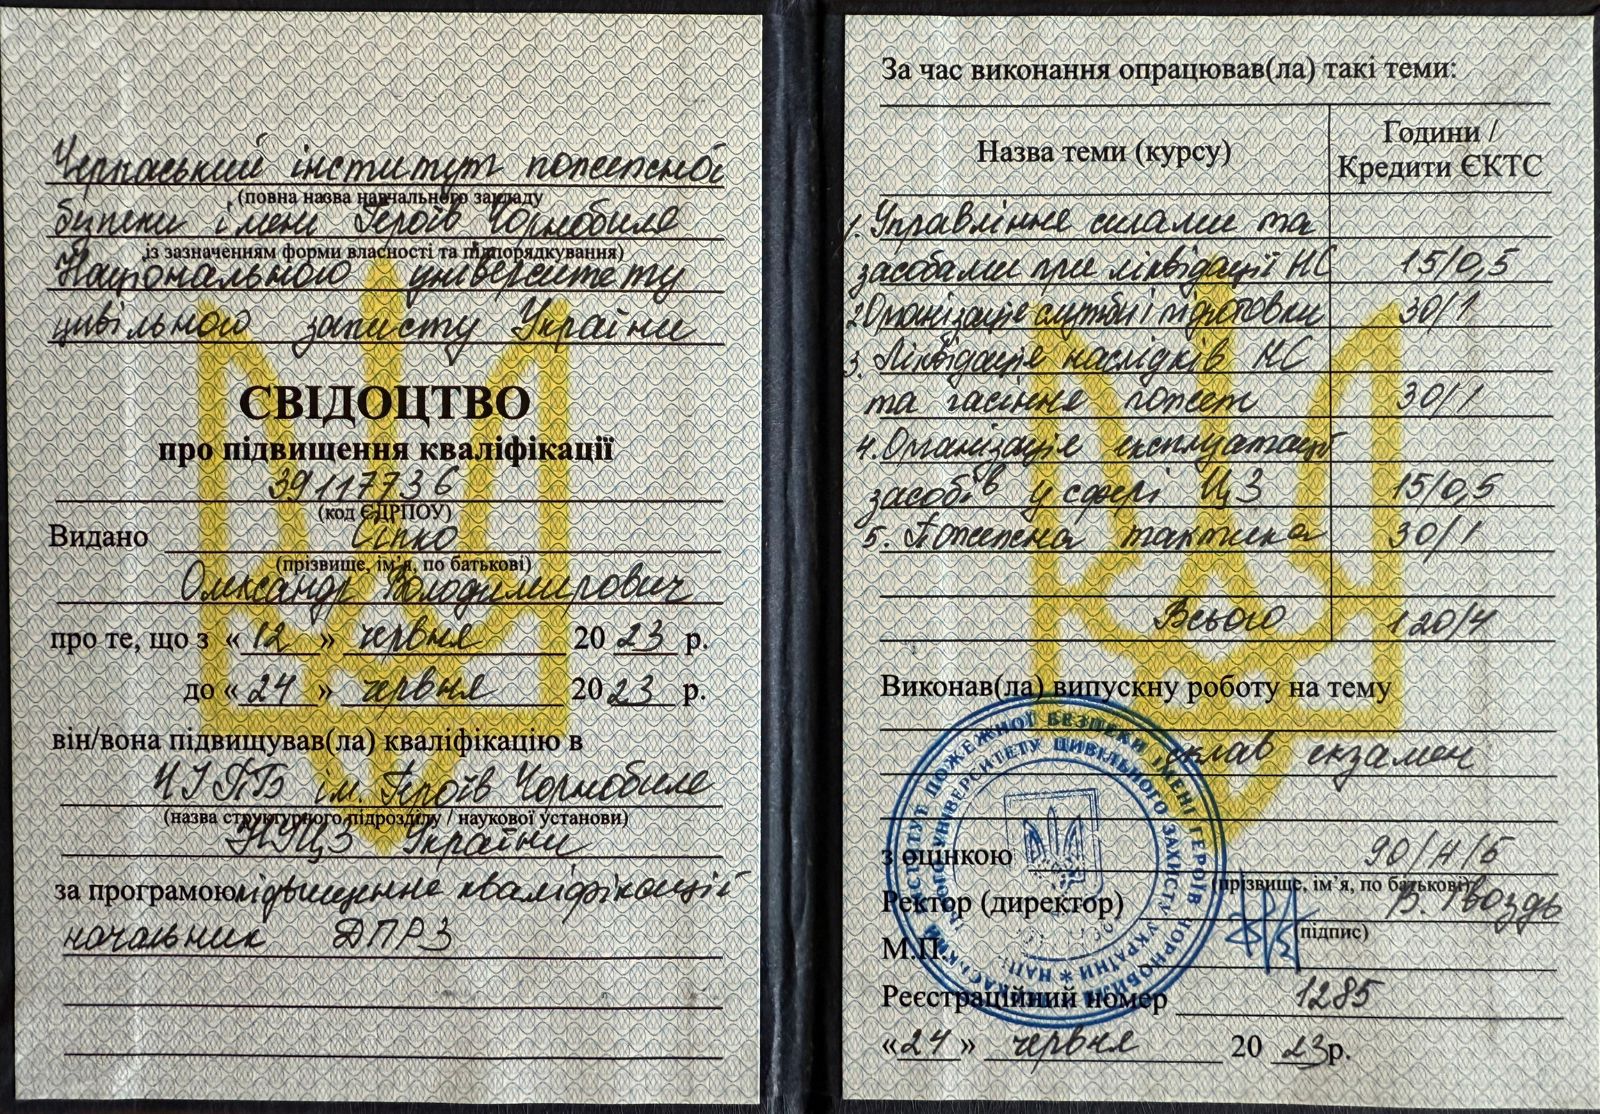 Черкаський інститут пожежної
(повна назва навчального закладу
безпеки імені Героїв Чорнобиля
із зазначенням форми власності та підпорядкування)
Національного університету
цивільного захисту України
СВІДОЦТВО
про підвищення кваліфікації
39117736
(код ЄДРПОУ)
Видано Сіпко
(прізвище, ім’я, по батькові)
Олександр Володимирович
про те, що з «12» червня 2023 р.
до «24» червня 2023 р.
він/вона підвищував(ла) кваліфікацію в
ЧІПБ ім. Героїв Чорнобиля
(назва структурного підрозділу / наукової установи)
НУЦЗ України
за програмою підвищення кваліфікації
начальник ДПРЗ
За час виконання опрацював(ла) такі теми:
Назва теми (курсу) Години / Кредити ЄКТС
1. Управління силами та
засобами при ліквідації НС 15/0,5
2. Організація служби і підготовки 30/1
3. Ліквідація наслідків НС
та гасіння пожеж 30/1
4. Організація експлуатації
засобів у сфері ЦЗ 15/0,5
5. Пожежна тактика 30/1
Всього 120/4
Виконав(ла) випускну роботу на тему
склав екзамен
з оцінкою 90/А/5
(прізвище, ім’я, по батькові)
Ректор (директор) В. Гвоздь
(підпис)
М.П.
Реєстраційний номер 1285
«24» червня 2023р.
ЧЕРКАСЬКИЙ ІНСТИТУТ ПОЖЕЖНОЇ БЕЗПЕКИ ІМЕНІ ГЕРОЇВ ЧОРНОБИЛЯ
НАЦІОНАЛЬНОГО УНІВЕРСИТЕТУ ЦИВІЛЬНОГО ЗАХИСТУ УКРАЇНИ